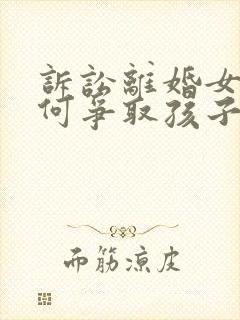 訴訟離婚女
何爭取孩子
面筋涼皮